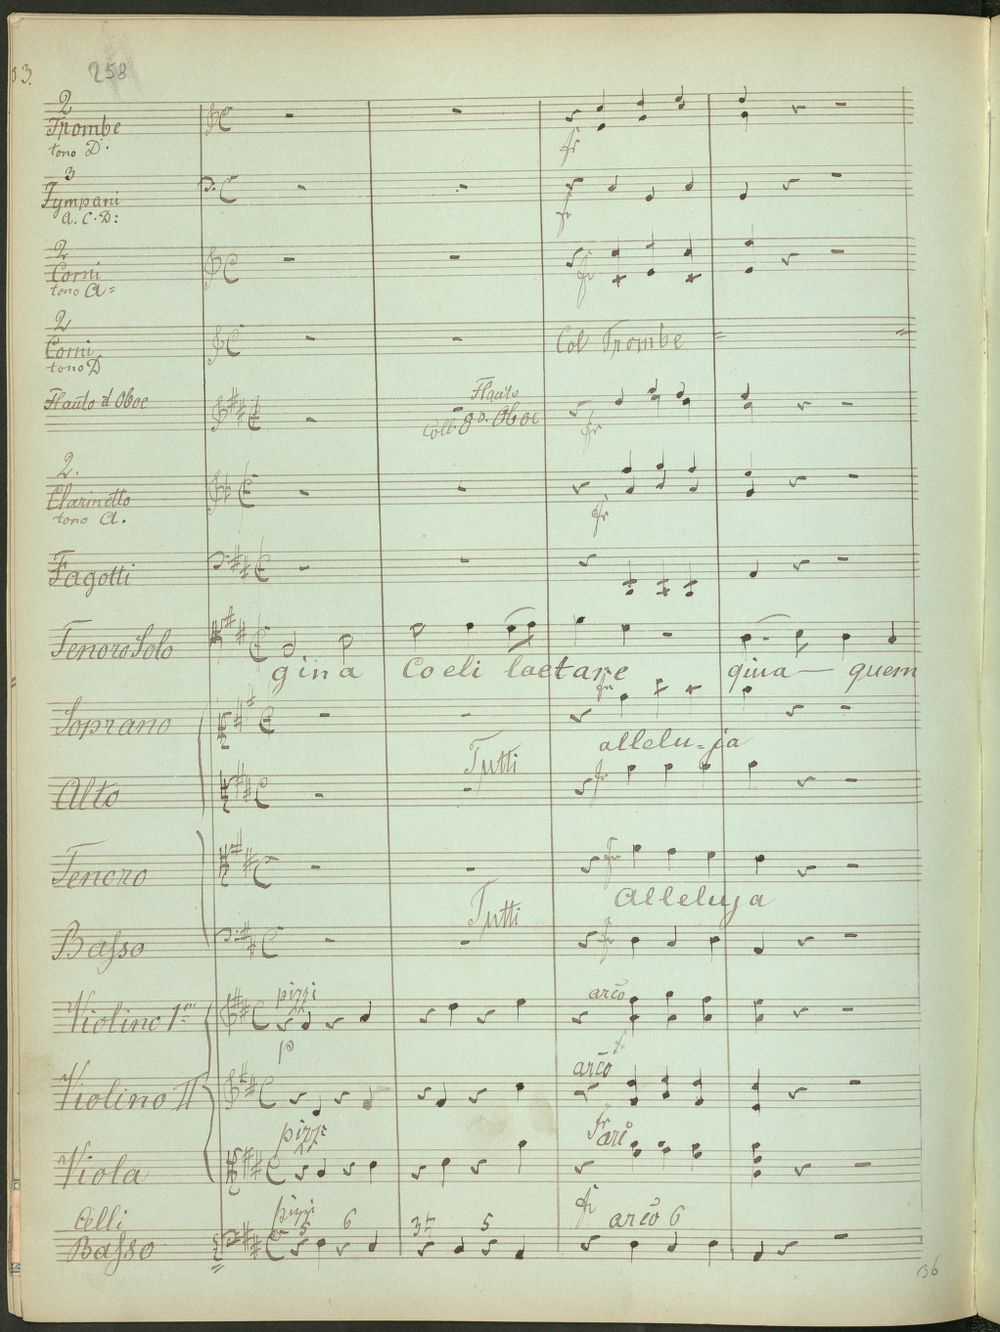 53.
258
2
Trombe
tono D.
fr
3
Tympani
A. C. D:
fr
2
Corni
tono A=
fr
2
Corni
tono D
Col Trombe
Flauto d Oboe
Flauto
Coll. 8va. Oboe
fr
2.
Clarinetto
tono A.
fr
Fagotti
Tenoro Solo
gina Coeli laetare gina — quem
Soprano
fr
allelu-ja
Tutti
Alto
fr
Tenoro
fr
Alleluja
Tutti
Basso
fr
Violino 1mo
pizzi
arco
p
fr
Violino II
arco
Viola
pizzi
fr
arco
Celli
Basso
pizzi
5 6 3 5
fr
arco 6
36